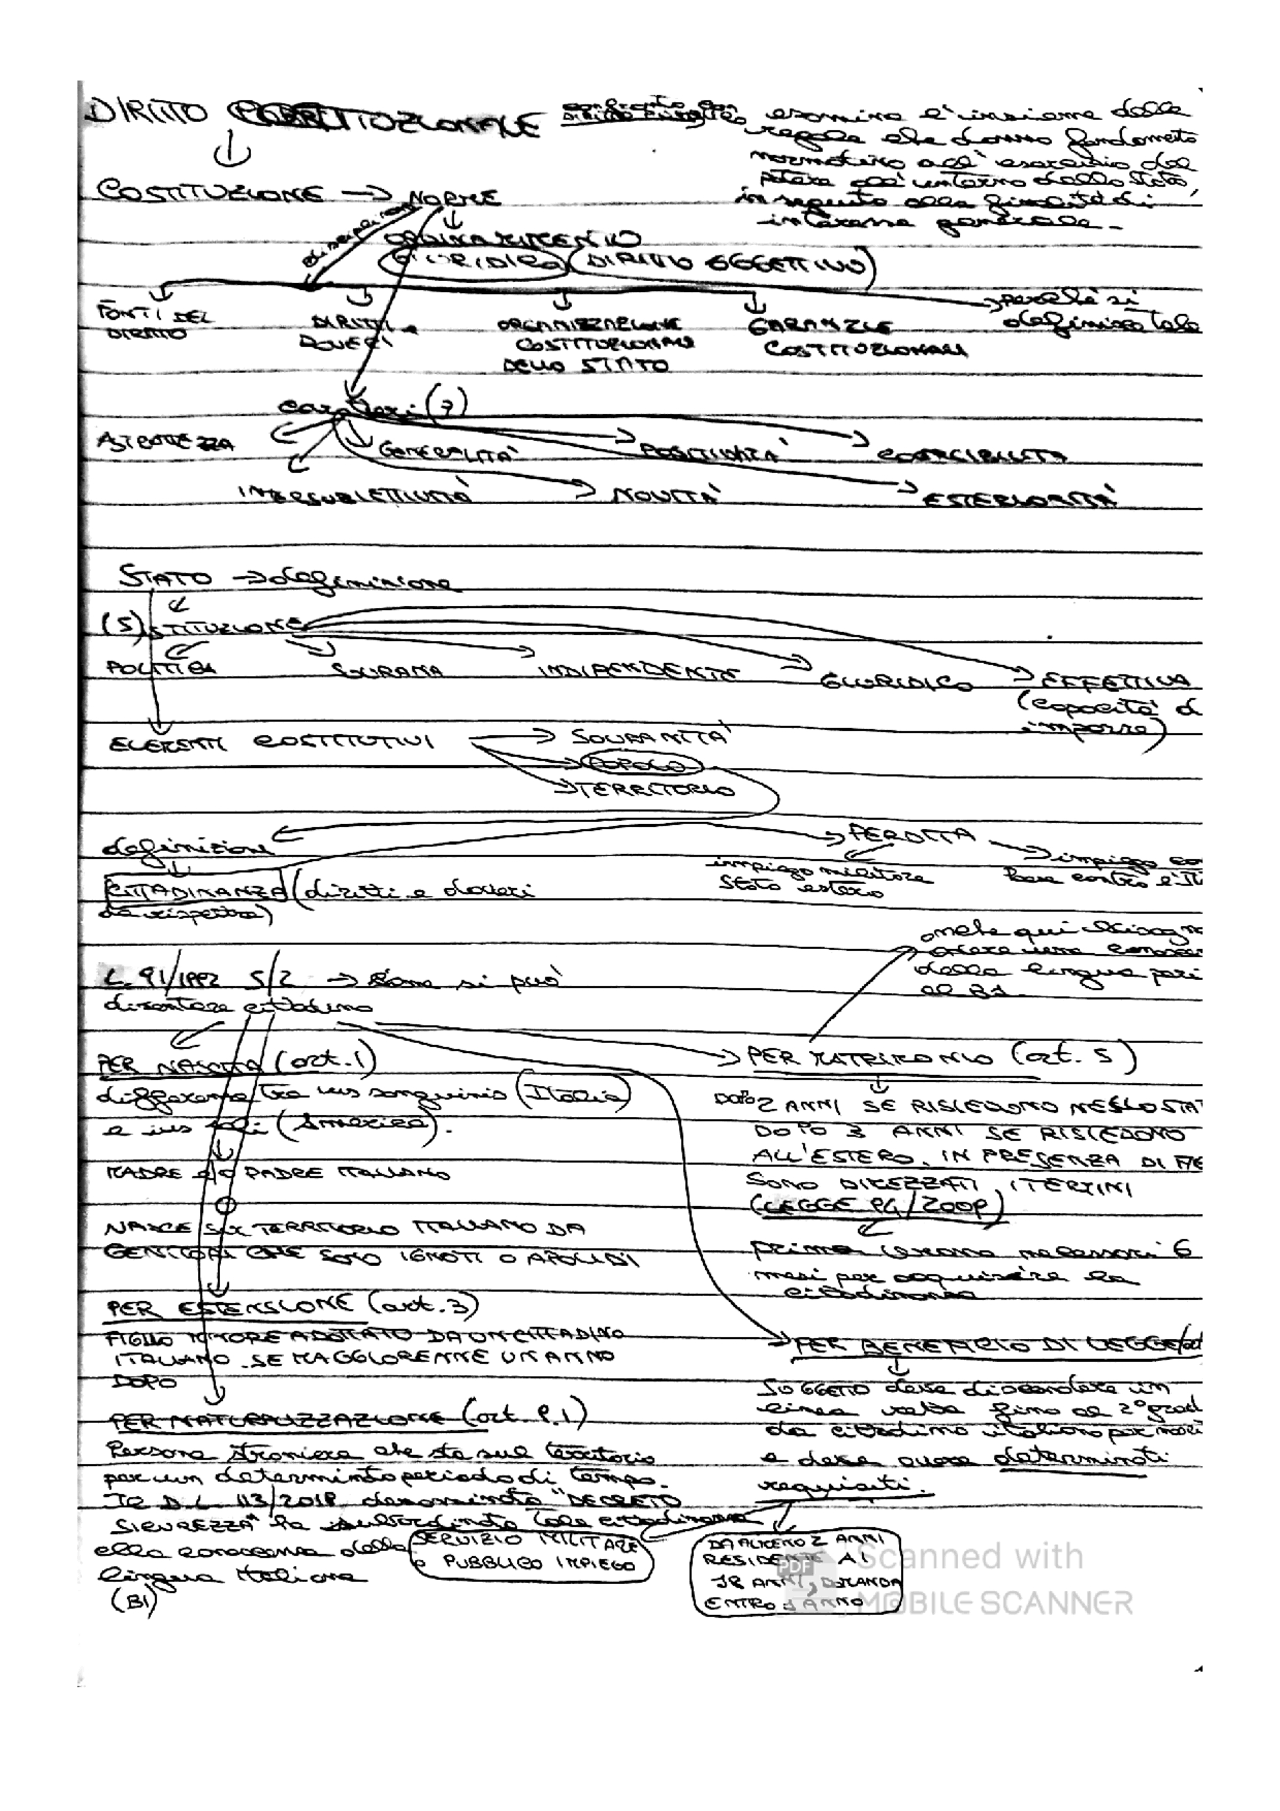 DIRITTO COSTITUZIONALE
esamina l'insieme delle
regole che danno fondamento
normativo all'esercizio del
potere all'interno dello Stato,
in seguito alla finalità di
interesse generale.
COSTITUZIONE → NORME
disciplinano
ORDINAMENTO
GIURIDICO (DIRITTO OGGETTIVO)
perché si
definisce tale
FONTI DEL
DIRITTO
DIRITTI e
DOVERI
ORGANIZZAZIONE
COSTITUZIONALE
DELLO STATO
GARANZIE
COSTITUZIONALI
caratteri (7)
ASTRATEZZA
GENERALITÀ
POSITIVITÀ
COERCIBILITÀ
INTERSUBIETTIVITÀ
NOVITÀ
ESTERIORITÀ
STATO → definizione
(5) ISTITUZIONE
POLITICA
SOVRANA
INDIPENDENTE
GIURIDICO
EFFETTIVA
(capacità d
imporre)
ELEMENTI COSTITUTIVI
SOVRANITÀ
POPOLO
TERRITORIO
definizione
PERDITA
impiego militare
Stato estero
impiego
CITTADINANZA (diritti e doveri
da rispettare)
anche qui bisogn
avere una
della lingua pari
al B1.
L. 91/1992 5/2 → Come si può
diventare cittadino
PER NASCITA (art. 1)
differenza tra ius sanguinis (Italia)
e ius soli (America).
MADRE e/o PADRE ITALIANO
O
NASCE SUL TERRITORIO ITALIANO DA
GENITORI CHE SONO IGNOTI O APOLIDI
PER ESTENSIONE (art. 3)
FIGLIO MINORE ADOTTATO DA UN CITTADINO
ITALIANO. SE MAGGIORENNE UN ANNO
DOPO
PER NATURALIZZAZIONE (art. 9.1)
Persona straniera che sta sul territorio
per un determinato periodo di tempo.
Il D.L. 113/2018 denominato "DECRETO
SICUREZZA" ha subordinato tale cittadinanza
alla conoscenza della
lingua italiana
(B1)
PER MATRIMONIO (art. 5)
DOPO 2 ANNI SE RISIEDONO NELLO STAT
DOPO 3 ANNI SE RISIEDONO
ALL'ESTERO. IN PRESENZA DI FIG
SONO DIMEZZATI I TERMINI
(LEGGE 94/2009)
prima erano necessari 6
mesi per acquisire la
cittadinanza
PER BENEFICIO DI LEGGE
SOGGETTO deve discendere in
linea retta fino al 2° grad
da cittadino italiano per nasci
e deve avere determinati
requisiti.
SERVIZIO MILITARE
O PUBBLICO IMPIEGO
DA ALMENO 2 ANNI
RESIDENTE AI
18 ANNI, DOMANDA
ENTRO 1 ANNO
PDF
Scanned with
MOBILE SCANNER